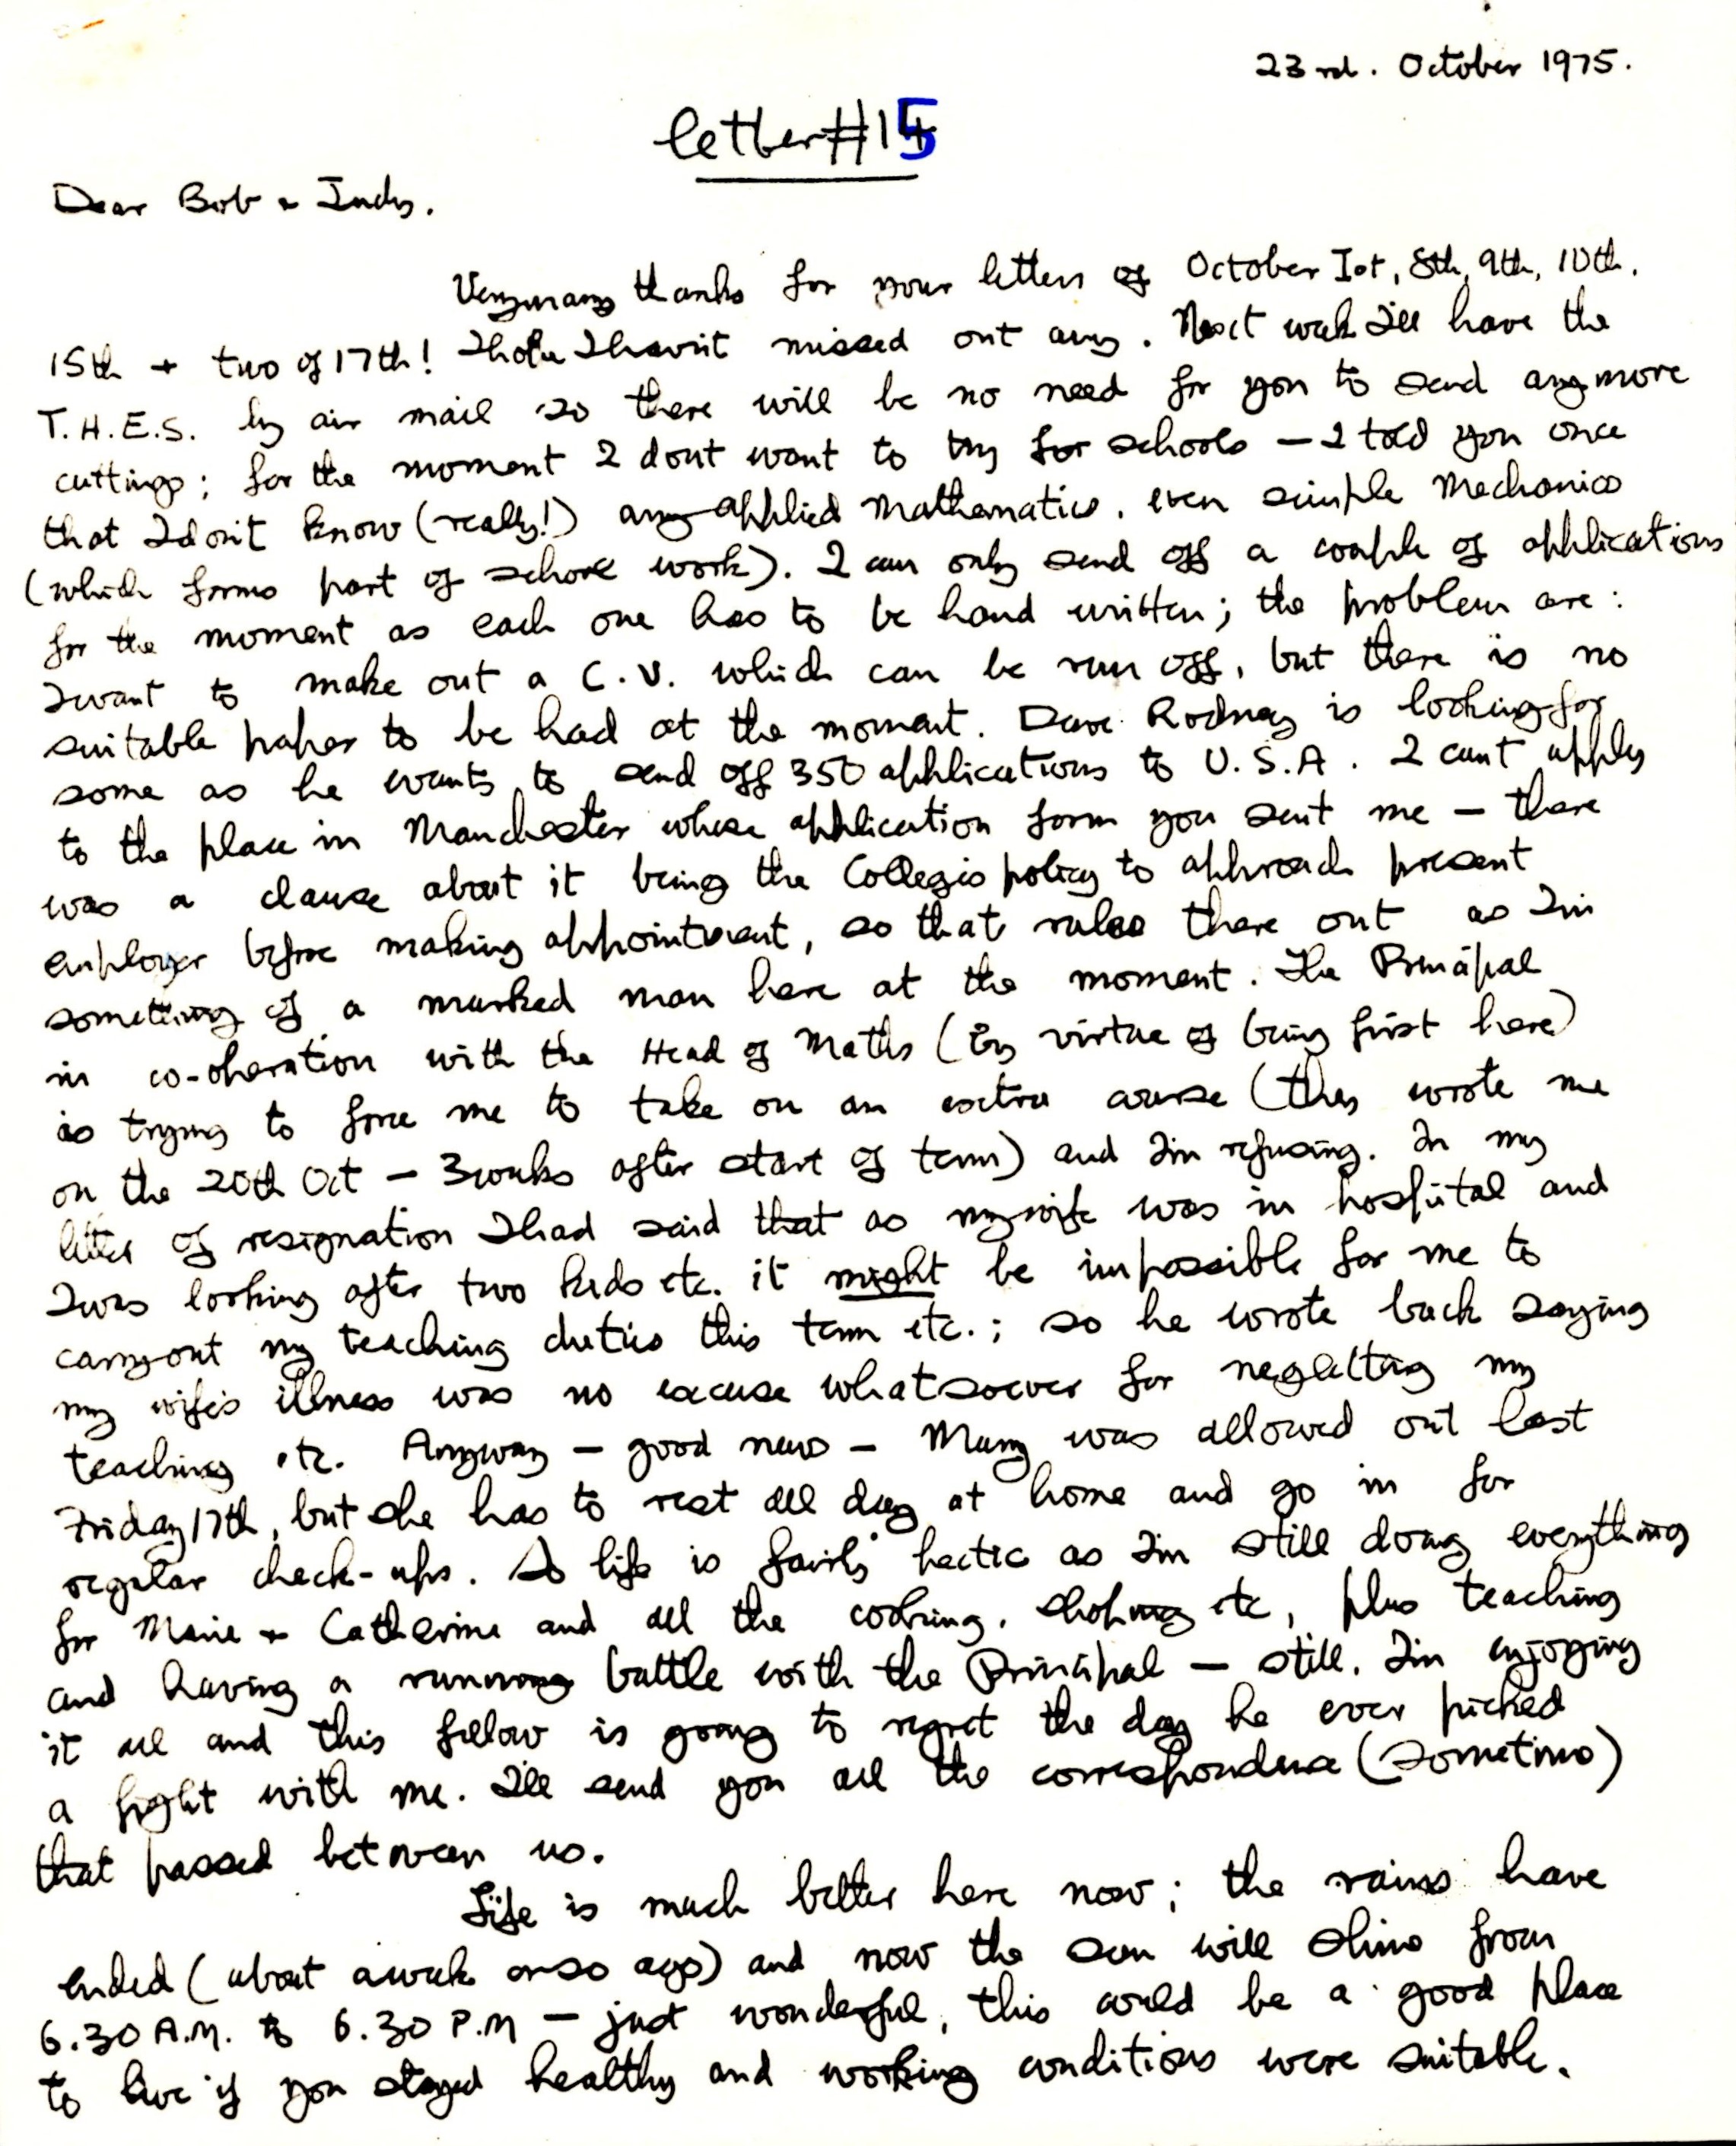 23rd. October 1975.
letter #15
Dear Bob + Judy.
Very many thanks for your letters of October 1st, 8th, 9th, 10th.
15th + two of 17th! I hope I havn't missed out any. Next week I'll have the
T.H.E.S. by air mail so there will be no need for you to send anymore
cuttings; for the moment I dont want to try for schools — I told you once
that I don't know (really!) any applied Mathematics, even simple Mechanics
(which forms part of school work). I can only send off a couple of applications
for the moment as each one has to be hand written; the problem are:
I want to make out a C.V. which can be run off, but there is no
suitable paper to be had at the moment. Dave Rodney is looking for
some as he wants to send off 350 applications to U.S.A. I can't apply
to the place in Manchester whose application form you sent me — there
was a clause about it being the College's policy to approach present
employer before making appointment, so that rules there out as I'm
something of a marked man here at the moment. The Principal
in co-operation with the Head of Maths (by virtue of being first here)
is trying to force me to take on an extra course (they wrote me
on the 20th Oct — 3 weeks after start of term) and I'm refusing. In my
letter of resignation I had said that as my wife was in hospital and
I was looking after two kids etc. it might be impossible for me to
carry out my teaching duties this term etc.; so he wrote back saying
my wife's illness was no excuse whatsoever for neglecting my
teaching etc. Anyway — good news — Mary was allowed out last
Friday 17th, but she has to rest all day at home and go in for
regular check-ups. So life is fairly hectic as I'm still doing everything
for Marie + Catherine and all the cooking, shoping etc, plus teaching
and having a running battle with the Principal — still, I'm enjoying
it all and this fellow is going to regret the day he ever picked
a fight with me. I'll send you all the correspondence (sometime)
that passed between us.
Life is much better here now; the rains have
ended (about a week or so ago) and now the sun will shine from
6.30 A.M. to 6.30 P.M — just wonderful, this could be a good place
to live if you stayed healthy and working conditions were suitable.